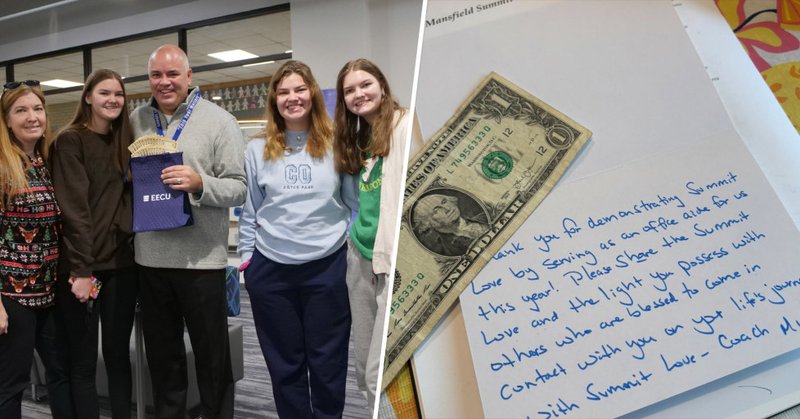 HO HO HO
EECU
CO
ESTES PARK
Mansfield Summit
THE UNITED STATES OF AMERICA
L 74956333 O
12
1
ONE DOLLAR
Thank you for demonstrating Summit
Love by serving as an office aide for us
this year! Please share the Summit
Love and the light you possess with
others who are blessed to come in
contact with you on your life's journey
with Summit Love - Coach M